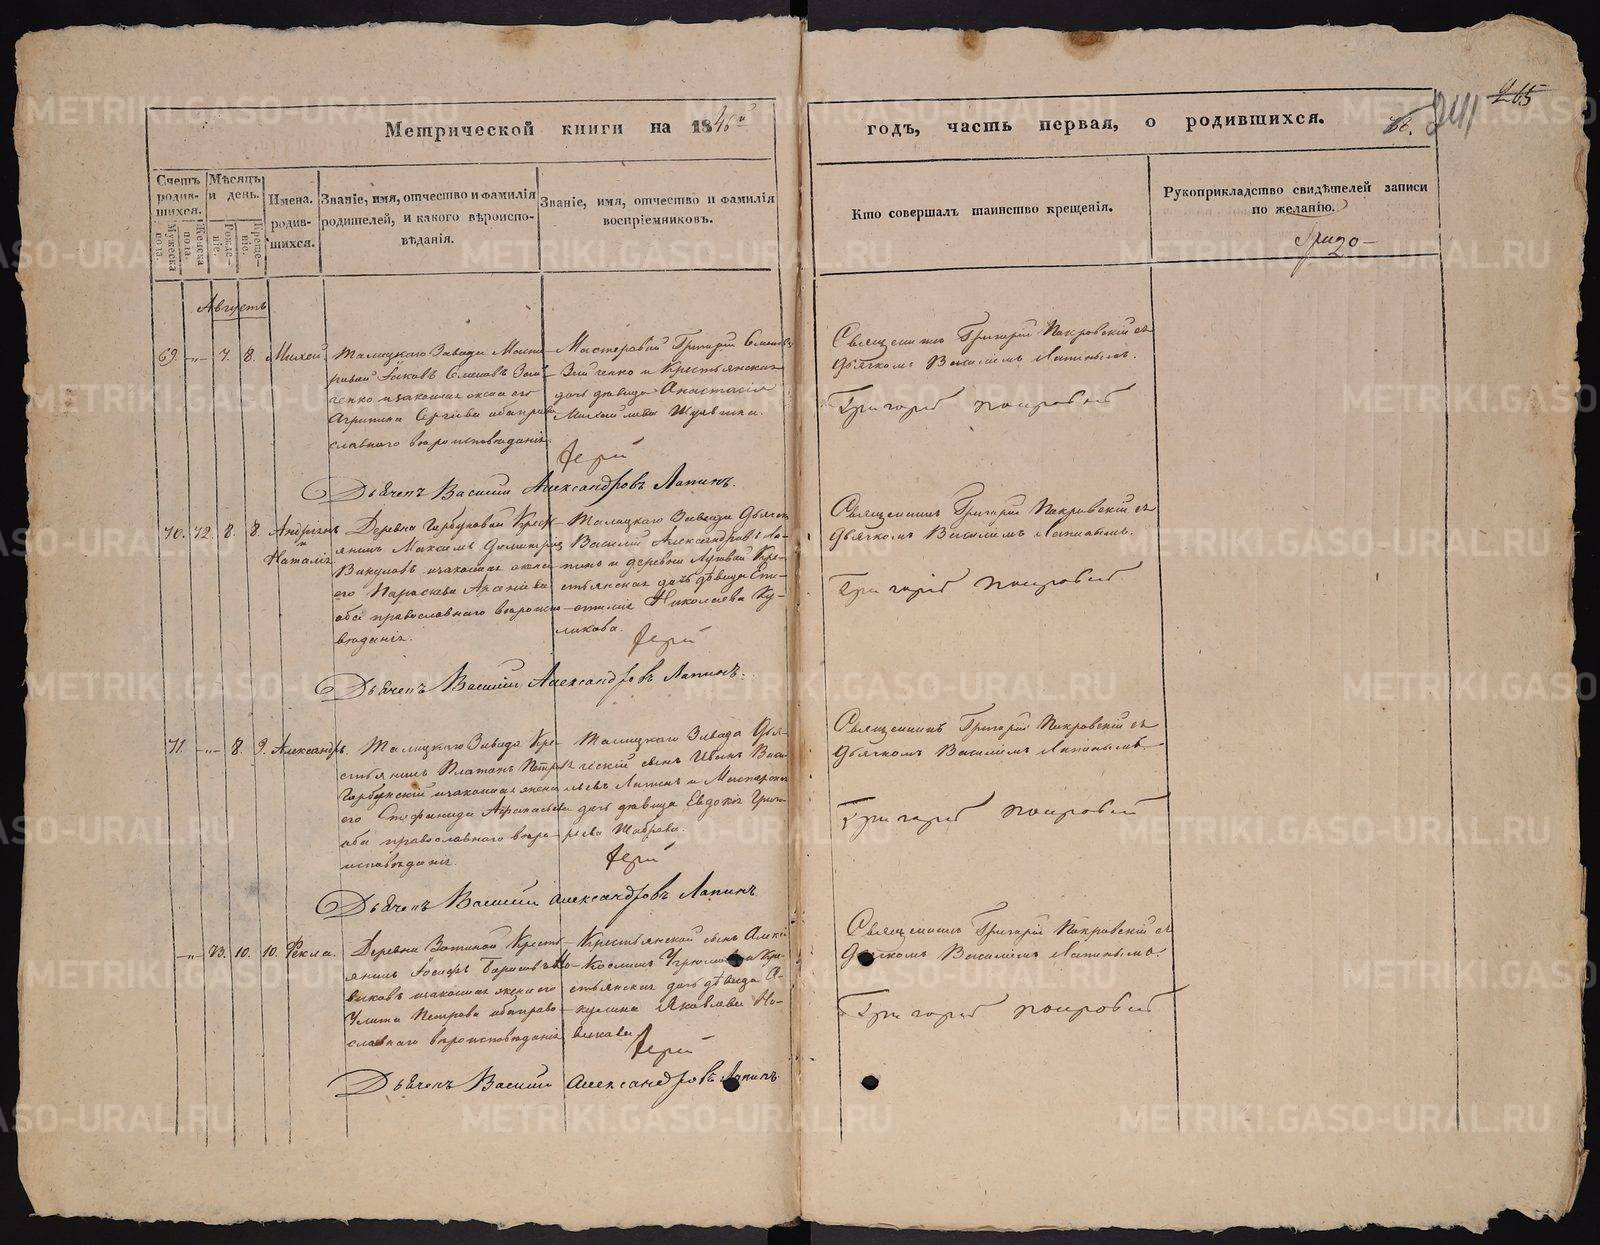 265
241
Метрической книги на 1846й
годъ, часть первая, о родившихся.
Счетъ родившихся.
Мужеска пола.
Женска пола.
Мѣсяцъ и день.
Рожденіе.
Крещеніе.
Имена родившихся.
Званіе, имя, отчество и фамилія родителей, и какого вѣроисповѣданія.
Званіе, имя, отчество и фамилія воспріемниковъ.
Кто совершалъ таинство крещенія.
Рукоприкладство свидѣтелей записи по желанію.
Августъ
69. -„- 7. 8. Михей
Талицкаго Завода Масте-
ровой Іаковъ Семеновъ
ченко и законная жена его
Агрипина Сергѣева оба право
славнаго вѣроисповѣданія.
Мастеровой Григорій Семеновъ
ченко и Крестьянская
дочь дѣвица Анастасія
Михайлова
Священникъ Григорій Покровскій съ
Дьячкомъ Василіемъ Лапинымъ.
Григорій Покровский
Дьячекъ Василий Александровъ Лапинъ.
70. 72. 8. 8. Андріанъ
и
Наталія
Деревни Горбуновой Крест
янинъ Максимъ Димитріевъ
Викуловъ и законная жена
его Параскева
оба православнаго вѣроиспо
вѣданія.
Талицкаго Завода Дьячекъ
Василій Александровъ Ла-
пинъ и деревни Луговой Кре-
стьянская дочь дѣвица Епи-
стимія Николаева Ку-
ликова.
Священникъ Григорій Покровскій съ
Дьячкомъ Василіемъ Лапинымъ.
Григорій Покровский
Дьячекъ Василий Александровъ Лапинъ.
71. -„- 8. 9. Александръ.
Талицкаго Завода Кре-
стьянинъ Платонъ Петровъ
Горбунскій и законная жена
его Стефанида Афанасьева
оба православнаго вѣро-
исповѣданія.
Талицкаго Завода Дья-
ческій сынъ Иванъ Васи
льевъ Лапинъ и Мастерская
дочь дѣвица Евдокія Григо
рьева
Священникъ Григорій Покровскій съ
Дьячкомъ Василіемъ Лапинымъ
Григорій Покровский
Дьячекъ Василий Александровъ Лапинъ
-„- 73. 10. 10. Фекла.
Деревни Кресть
янинъ Іосифъ Борисовъ Но-
виковъ и законная жена его
Улита Петрова оба право
славнаго вѣроисповѣданія
Крестьянской сынъ Алексѣй
Косминъ и Кре-
стьянская дочь дѣвица А-
кулина Яковлева Но-
викова
Священникъ Григорій Покровскій съ
Дьячкомъ Василіемъ Лапинымъ.
Григорій Покровский
Дьячекъ Василий Александровъ Лапинъ
METRIKI.GASO-URAL.RU